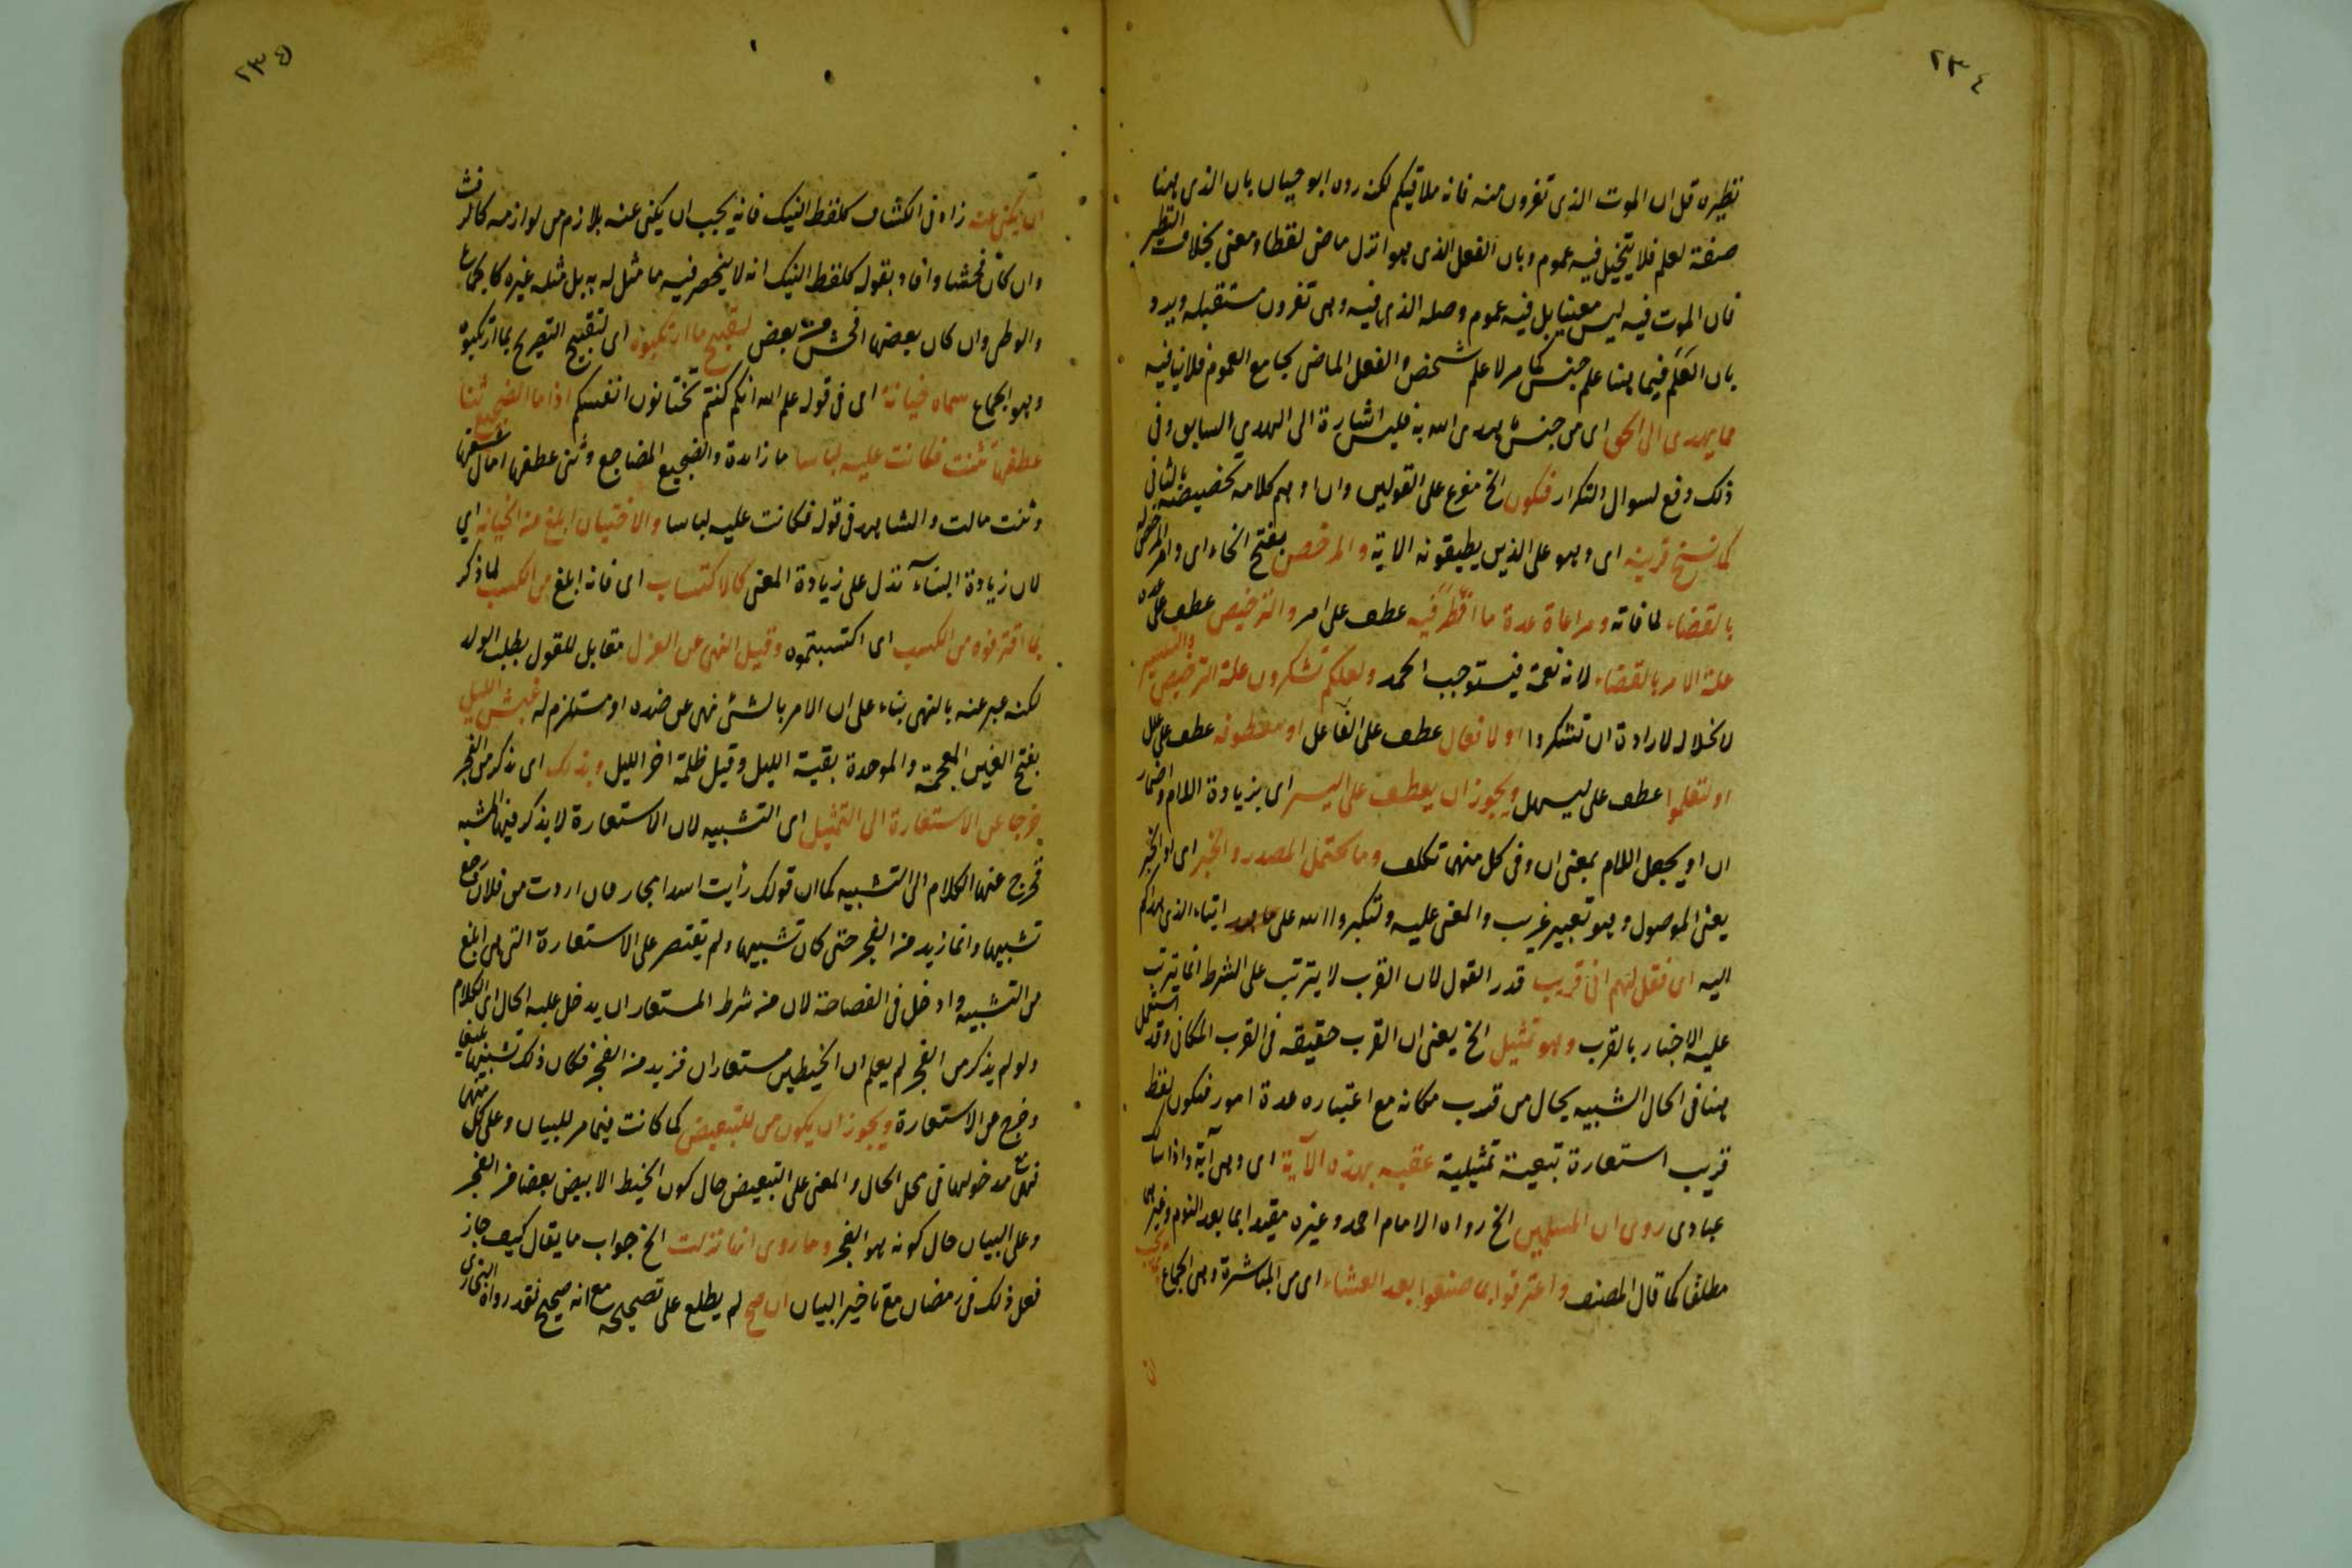 ٢٣٤
نظيره قل ان الموت الذى تفرون منه فانه ملاقيكم لكنه رده ابو حيان بان الذى هنا
صفة لعلم فلا يتخيل فيه عموم وبان الفعل الذى هو انزل ماض لفظا ومعنى بخلاف النظير
فان الموت فيه ليس معينا بل فيه عموم وصلة الذى فيه وهى تفرون مستقبلة ويرد
بان العلم فيما هنا علم جنس كما مر لا علم شخص والفعل الماضى يجامع العموم فلا ينافيه
مما يهدى الى الحق اى من جنس ما هدى الله به فليس اشارة الى الهدى السابق وفى
ذلك دفع لسوال التكرار فيكون الخ مفرع على القولين وان اوهم كلامه تخصيصه بالثانى
كما نسخ قرينه اى وهو على الذين يطيقونه الاية والمرخص بفتح الخاء اى وامر المرخص له
بالقضاء لما فاته ومراعاة عدة ما افطر فيه عطف على امر والترخيص عطف على عدة
علة الامر بالقضاء لانه نعمة فيستوجب الحمد ولعلكم تشكرون علة الترخيص والتيسير
لا نخلال لارادة ان تشكروا او لافعال عطف على الفاعل او معطوفة عطف على علل
او لتعلموا عطف على ليسهل ويجوز ان يعطف على اليسر اى بزيادة اللام واضمار
ان او بجعل اللام بمعنى ان وفى كل منهما تكلف وما يحتمل المصدر والخبر اى او الخبر
يعنى الموصول وهو تعبير غريب والمعنى عليه ولتكبروا الله على ما هد اتباء الذى هداكم
اليه اى فقل لهم انى قريب قدر القول لان القرب لا يترتب على الشرط انما يترتب
عليه الاخبار بالقرب وهو تمثيل الخ يعنى ان القرب حقيقة فى القرب المكانى وقد استعمل
هنا فى الحال الشبيه بحال من قرب مكانه مع اعتباره عدة امور فيكون لفظ
قريب استعارة تبعية تمثيلية عقبه بهذه الآية اى وهى آية واذا سالك
عبادى روى ان المسلمين الخ رواه الامام احمد وغيره مقيدا بما بعد النوم وغيرها
مطلقا كما قال المصنف واعترفوا بما صنعوا بعد العشاء اى من المباشرة وهى الجماع يجب
٢٣٥
ان يكنى عنه زاد فى الكشاف كلفظ النيك فانه يجب ان يكنى عنه بلازم من لوازمه كالرفث
وان كان فحشا وافاد بقوله كلفظ النيك انه لا ينحصر فيه ما مثل له به بل مثله غيره كالجماع
والوطى وان كان بعضها افحش من بعض لتقبيح ما ارتكبوه اى لتقبيح التصريح بما ارتكبوه
وهو الجماع سماه خيانة اى فى قوله علم الله انكم كنتم تختانون انفسكم اذا ما الضجيع ثنا
عطفها تثنت فكانت عليه لباسا ما زائدة والضجيع المضاجع وثنى عطفها امال شقها
وثنت مالت والشاهد فى قوله فكانت عليه لباسا والاختيان ابلغ من الخيانة اى
لان زيادة البناء تدل على زيادة المعنى كالاكتساب اى فانه ابلغ من الكسب لما ذكر
بما اقترفوه من الكسب اى اكتسبتموه وقيل النهى عن العزل مقابل للقول بطلب الولد
لكنه عبر عنه بالنهى بناء على ان الامر بالشئ نهى عن ضده او مستلزم له غبش الليل
بفتح الغين المعجمة والموحدة بقية الليل وقيل ظلمة اخر الليل وبذلك اى بذكر من الفجر
خرجا عن الاستعارة الى التمثيل اى التشبيه لان الاستعارة لا يذكر فيها المشبه
فخرج عنها الكلام الى التشبيه كما ان قولك رأيت اسدا مجاز فان اردت من فلان رجع
تشبيها وانما زيد من الفجر حتى كان تشبيها ولم يقتصر على الاستعارة التى هى ابلغ
من التشبيه وادخل فى الفصاحة لان من شرط المستعار ان يدخل عليه الحال اى الكلام
ولو لم يذكر من الفجر لم يعلم ان الخيطين مستعاران فزيد من الفجر فكان ذلك تشبيها بليغا
وخرج من الاستعارة ويجوز ان يكون من للتبعيض كما كانت فيما مر للبيان وعلى كل منهما
فهى مع مدخولها فى محل الحال والمعنى على التبعيض حال كون الخيط الابيض بعضا من الفجر
وعلى البيان حال كونه هو الفجر وما روى انها نزلت الخ جواب ما يقال كيف جاز
فعل ذلك فى رمضان مع تاخير البيان ان صح لم يطلع على تصحيحه مع انه صحيح فقد رواه البخارى